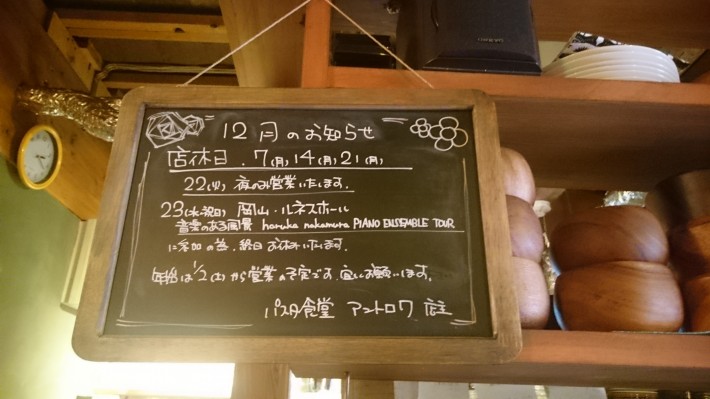 12月のお知らせ
店休日. 7(月) 14(月) 21(月)
22(火) 夜のみ営業いたします.
23(水・祝日) 岡山・ルネスホール
音楽のある風景 haruka nakamura PIANO ENSEMBLE TOUR
に参加の為. 終日 お休みいたします.
年始は 1/2(土)から営業の予定です. 宜しくお願いします.
パスタ食堂 アコトロワ 店主